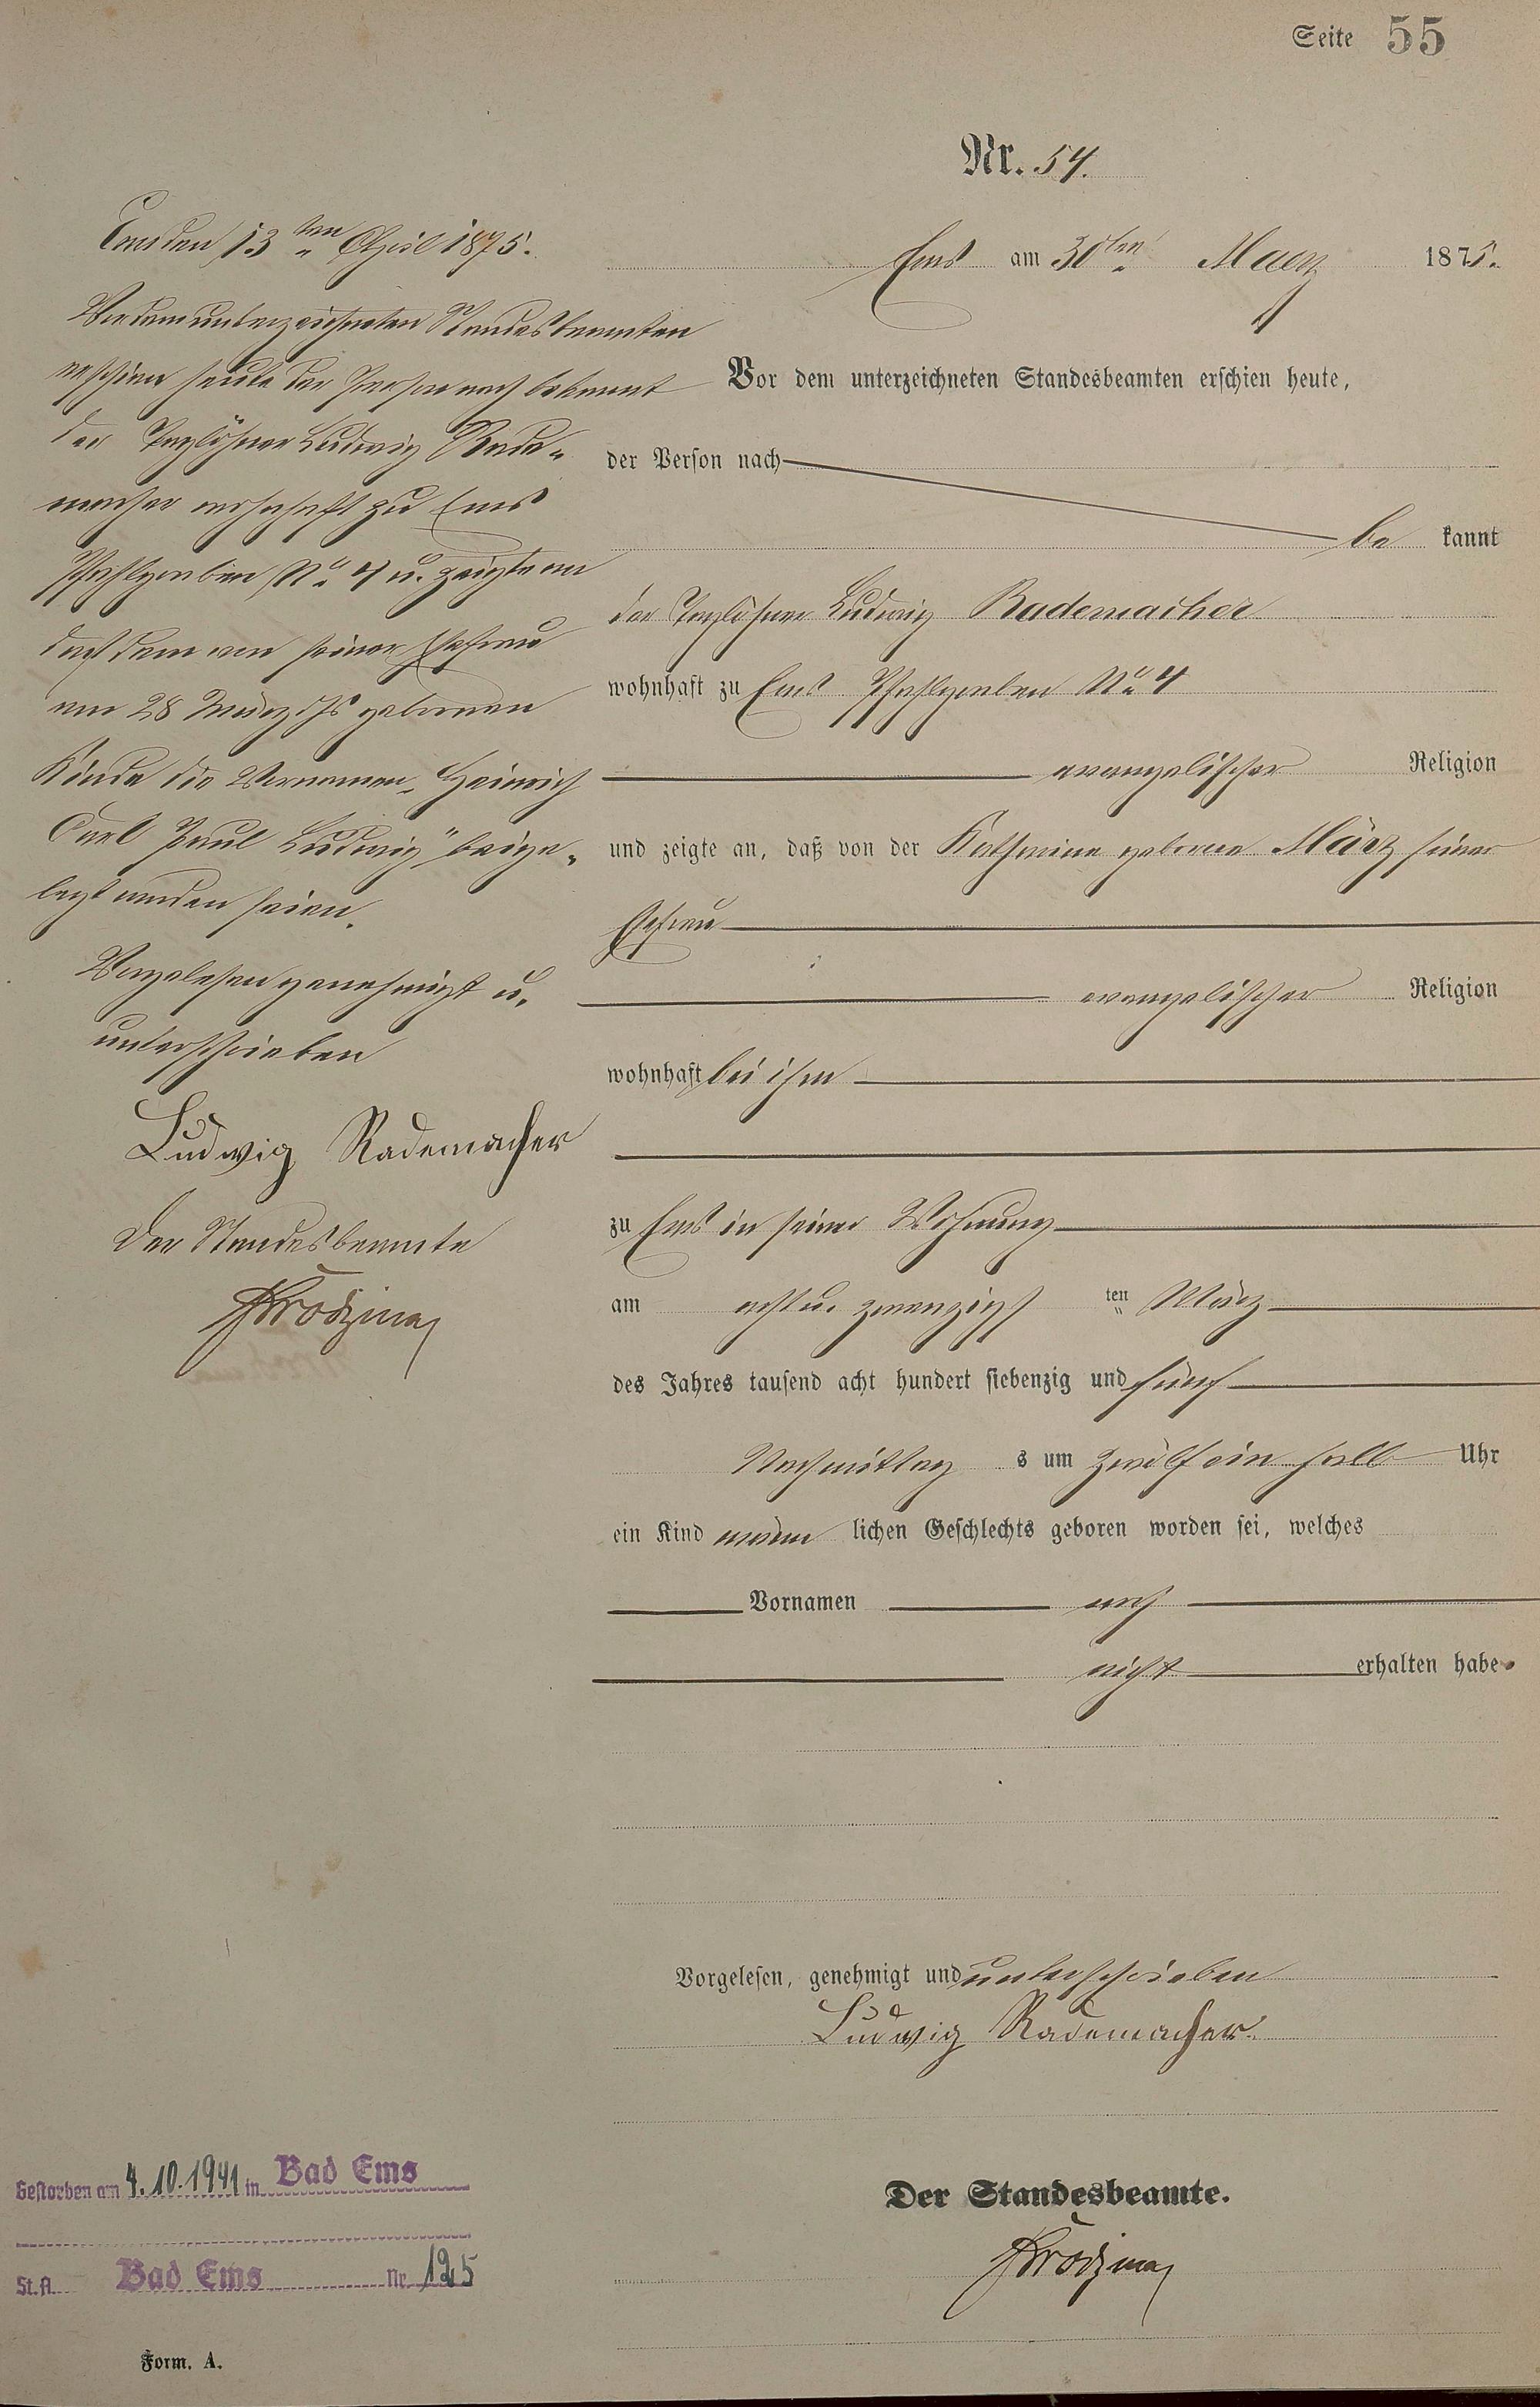 Seite 55
Nr. 54.
Ems am 30ten Maerz 1875.
Vor dem unterzeichneten Standesbeamten erschien heute,
der Person nach
be kannt
der Taglöhner Ludwig Rademacher
wohnhaft zu Ems Pfahlgraben No 4
evangelischer Religion
und zeigte an, daß von der Katharina geborene März seiner
Ehefrau
evangelischer Religion
wohnhaft bei ihm
zu Ems in seiner Wohnung
am acht u. zwanzigst ten März
des Jahres tausend acht hundert siebenzig und fünf
Nachmittag s um zwölf ein halb Uhr
ein Kind männ lichen Geschlechts geboren worden sei, welches
Vornamen noch
nicht erhalten habe
Vorgelesen, genehmigt und unterschrieben
Ludwig Rademacher.
Der Standesbeamte.
Ems den 13ten April 1875.
Vor dem unterzeichneten Standesbeamten
erschien heute der Person nach bekannt
der Taglöhner Ludwig Rade-
macher wohnhaft zu Ems
Pfahlgraben No 4 u. zeigte an
daß dem von seiner Ehefrau
am 28 März Js geborenen
Kinde die Vornamen „Heinrich
Carl Paul Ludwig" beige-
legt worden seien.
Vorgelesen genehmigt u.
unterschrieben
Ludwig Rademacher
Der Standesbeamte
Gestorben am 4.10.1941 in Bad Ems
St.A. Bad Ems Nr. 125
Form. A.